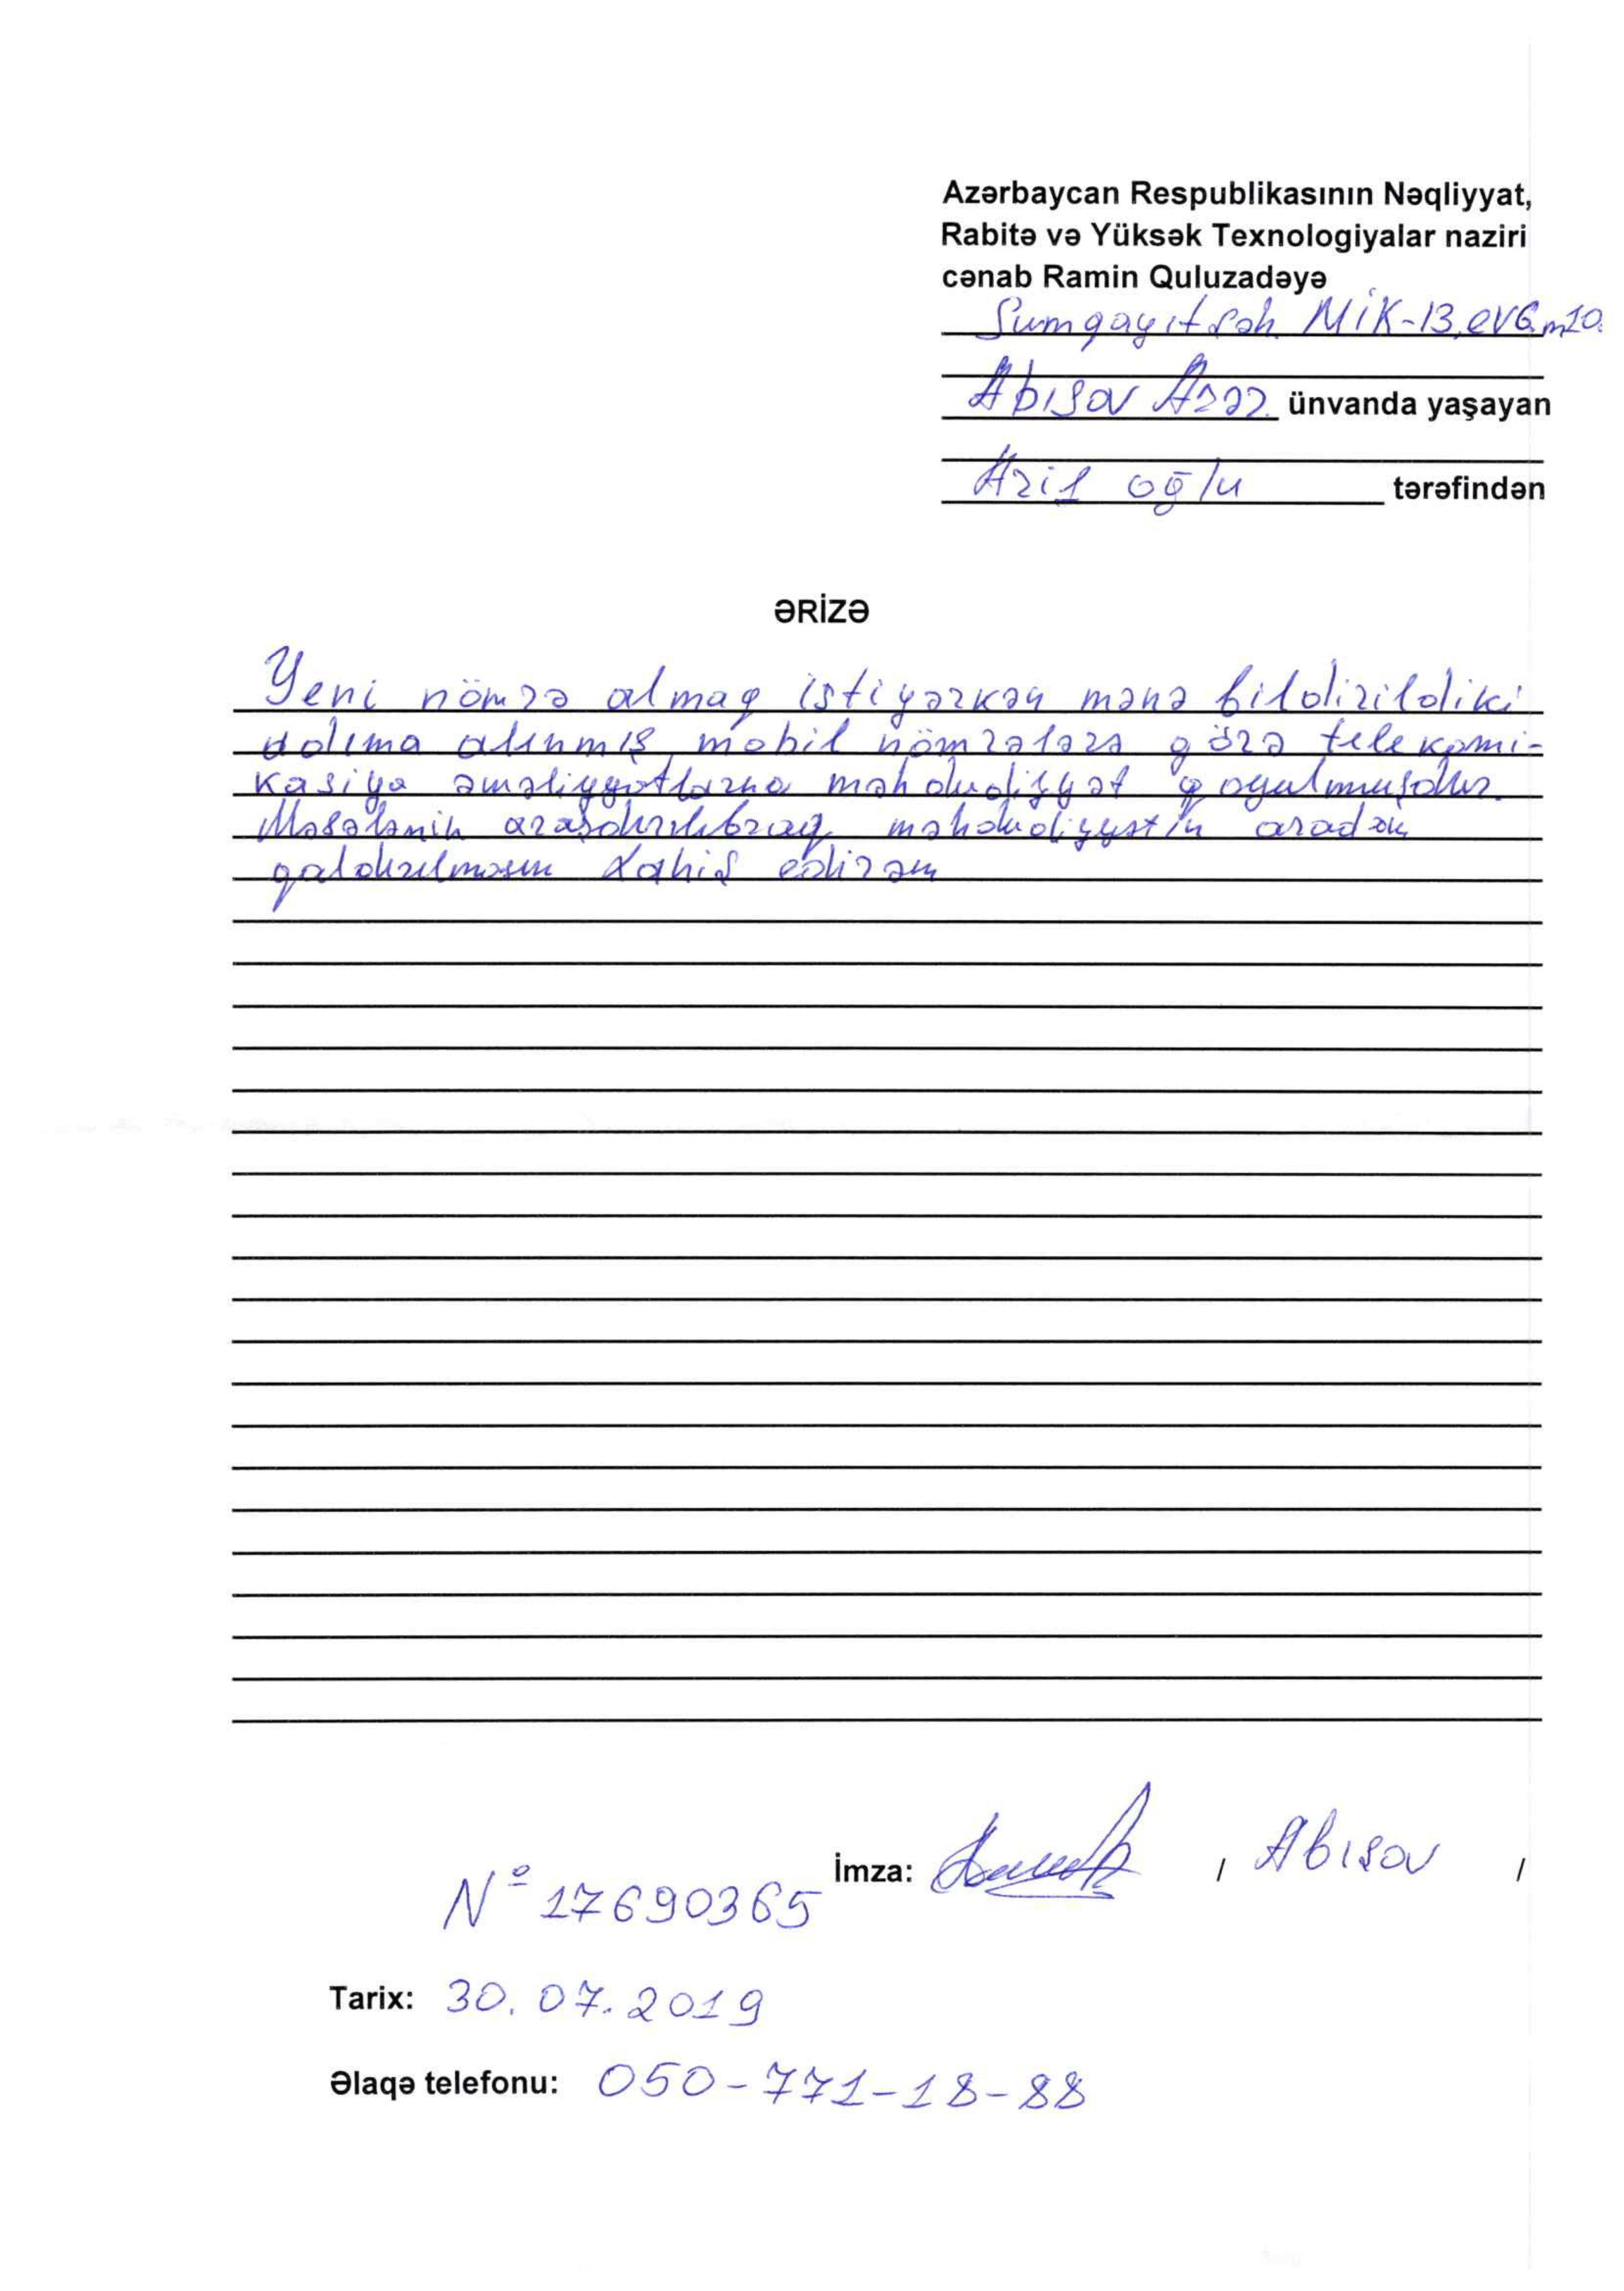 Azərbaycan Respublikasının Nəqliyyat,
Rabitə və Yüksək Texnologiyalar naziri
cənab Ramin Quluzadəyə
Sumqayıt şəh. MİK-13, ev 6 m 10.
Abışov ünvanda yaşayan
oğlu tərəfindən
ƏRİZƏ
Yeni nömrə almaq istiyərkən mənə bildirildiki
adıma alınmış mobil nömrələrə görə telekomi-
kasiya əməliyyatlarına məhdudiyyət qoyulmuşdur.
Məsələnin məhdudiyyətin aradan
qaldırılmasını xahiş edirəm
İmza: / Abışov /
Nº 17690365
Tarix: 30.07.2019
Əlaqə telefonu: 050-771-18-88